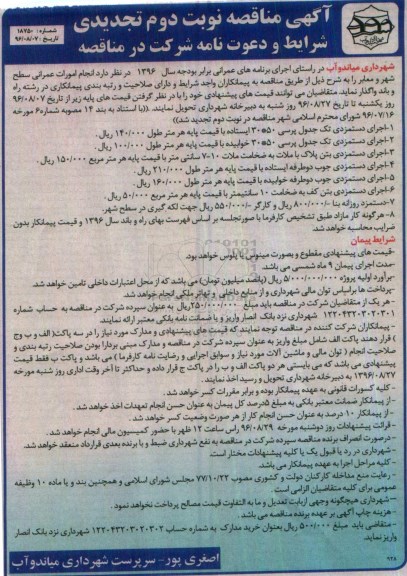 آگهی مناقصه نوبت دوم تجدیدی
شرایط و دعوت نامه شرکت در مناقصه
شماره: ۱۸۷۵۰
تاریخ: ۹۶/۰۸/۰۷
شهرداری میاندوآب در راستای اجرای برنامه های عمرانی برابر بودجه سال ۱۳۹۶ در نظر دارد انجام امورات عمرانی سطح
شهر و معابر را به شرح ذیل از طریق مناقصه به پیمانکاران واجد شرایط و دارای صلاحیت و رتبه بندی پیمانکاری در رشته راه
و باند واگذار نماید. متقاضیان می توانند قیمت های پیشنهادی خود را با در نظر گرفتن قیمت های پایه زیر از تاریخ ۹۶/۰۸/۰۷
روز یکشنبه تا تاریخ ۹۶/۰۸/۲۷ روز شنبه به دبیرخانه شهرداری تحویل نمایند. ((با استناد به بند ۱۴ مصوبه شماره ۶ مورخه
۹۶/۰۷/۱۶ شورای محترم اسلامی شهر مناقصه در نوبت دوم تجدید شد))
۱-اجرای دستمزدی تک جدول پرسی ۵۰*۳۰ ایستاده با قیمت پایه هر متر طول ۱۴۰/۰۰۰ ریال.
۲-اجرای دستمزدی تک جدول پرسی ۵۰*۳۰ خوابیده با قیمت پایه هر متر طول ۱۰۰/۰۰۰ ریال.
۳-اجرای دستمزدی بتن پلاک با ملات به ضخامت ملات ۱۰-۷ سانتی متر با قیمت پایه هر متر مربع ۱۵۰/۰۰۰ ریال.
۴-اجرای دستمزدی جوب دوطرفه ایستاده با قیمت پایه هر متر طول ۲۱۰/۰۰۰ ریال.
۵-اجرای دستمزدی جوب دوطرفه خوابیده با قیمت پایه هر متر طول ۱۶۰/۰۰۰ ریال.
۶-اجرای دستمزدی بتن کف به ضخامت ۱۰ سانتیمتر با قیمت پایه هر متر مربع ۵۰/۰۰۰ ریال.
۷-دستمزد روزانه بنا ۸۰۰/۰۰۰ ریال و کارگر ۵۵۰/۰۰۰ ریال جهت لکه گیری در سطح شهر.
۸-هر گونه کار مازاد طبق تشخیص کارفرما با صورتجلسه بر اساس فهرست بهای راه و باند سال ۱۳۹۶ و قیمت پیمانکار بدون
ضرایب محاسبه خواهد شد.
شرایط پیمان
-قیمت های پیشنهادی مقطوع و بصورت مینوس یا پلوس خواهد بود.
-مدت اجرای پیمان ۹ ماه شمسی می باشد.
-برآورد اولیه پروژه ۵/۰۰۰/۰۰۰/۰۰۰ ریال (پانصد میلیون تومان) می باشد که از محل اعتبارات داخلی تامین خواهد شد.
-پرداخت ها براساس توان مالی شهرداری و از منابع داخلی و تهاتر ملکی انجام خواهد شد.
- هر یک از متقاضیان شرکت در مناقصه باید مبلغ ۲۵۰/۰۰۰/۰۰۰ ریال به عنوان سپرده شرکت در مناقصه به حساب شماره
۱۲۲۰۴۳۲۰۳۰۲۰۳۰۱ شهرداری نزد بانک انصار واریز و یا ضمانت نامه بانکی معتبر ارائه نمایند.
- پیمانکاران شرکت کننده در مناقصه توجه نمایند که قیمت های پیشنهادی و مدارک مورد نیاز را در سه پاکت( الف و ب و ج
) قرار دهند پاکت الف شامل مبلغ واریز به عنوان سپرده شرکت در مناقصه و مدارک مبنی بردارا بودن صلاحیت رتبه بندی و
صلاحیت انجام ( توان مالی و ماشین آلات مورد نیاز و سوابق اجرایی و رضایت نامه کارفرما ) می باشد و پاکت ب فقط قیمت
پیشنهادی می باشد که می بایستی هر دو پاکت الف و ب را در پاکت ج قرار داده و حداکثر تا آخر وقت اداری روز شنبه مورخه
۱۳۹۶/۰۸/۲۷ به دبیرخانه شهرداری تحویل و رسید اخذ نمایند.
- کلیه کسورات قانونی به عهده پیمانکار بوده و برابر مقررات کسر خواهد شد.
- از پیمانکار ضمانت معتبر بانکی به مبلغ ۵درصد کل پیمان به عنوان حسن انجام تعهدات اخذ خواهد شد.
- از پیمانکار ۱۰ درصد به عنوان حسن انجام کار از هر صورت وضعیت کسر خواهد شد.
- قرائت پیشنهادات روز دوشنبه مورخه ۹۶/۰۸/۲۹ راس ساعت ۱۲ ظهر با حضور کمیسیون مالی انجام خواهد شد.
-درصورت انصراف برنده مناقصه سپرده شرکت در مناقصه به نفع شهرداری ضبط و با برنده بعدی قرارداد منعقد خواهد شد.
-شهرداری در رد یا قبول یک یا کلیه پیشنهادات مختار است
- کلیه مراحل اجرا به عهده پیمانکار می باشد.
- رعایت منع مداخله کارکنان دولت و کشوری مصوب ۷۷/۱۰/۲۲ مجلس شورای اسلامی و همچنین بند و یا ماده ۱۰ وظیفه
عمومی برای کلیه متقاضیان الزامی است.
- شهرداری هیچگونه وجهی از بابت تعدیل و ما به التفاوت قیمت مصالح پرداخت نخواهد نمود.
- هزینه چاپ آگهی بر عهده برنده مناقصه می باشد.
- متقاضی باید مبلغ ۵۰۰/۰۰۰ ریال بعنوان خرید مدارک به شماره حساب ۱۲۲۰۴۳۲۰۳۰۲۰۳۰۲ شهرداری نزد بانک انصار
واریز نماید.
اصغری پور- سرپرست شهرداری میاندوآب